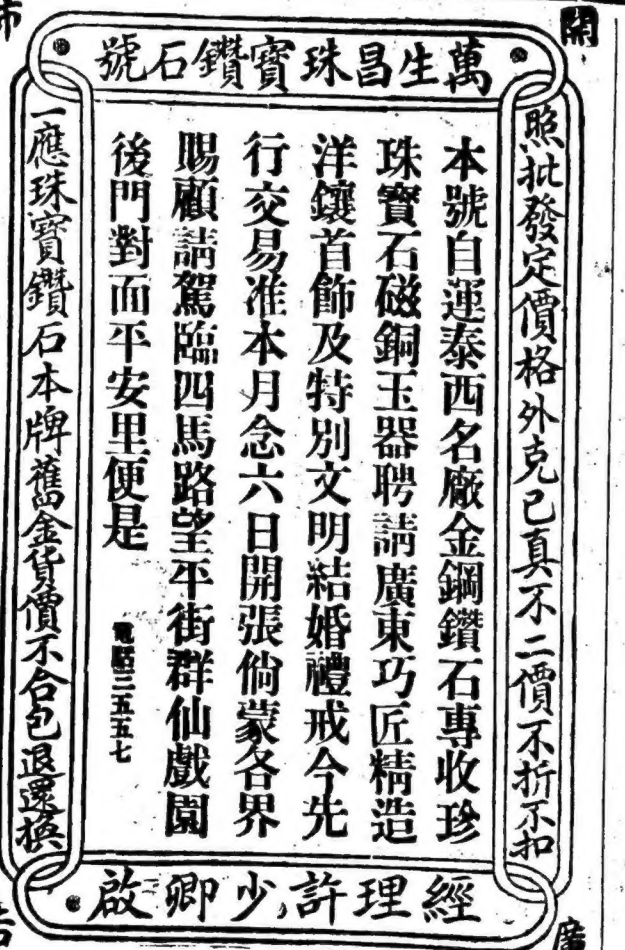 開
市
廣
告
萬生昌珠寶鑽石號
照批發定價格外克己真不二價不折不扣
本號自運泰西名廠金鋼鑽石專收珍
珠寶石磁銅玉器聘請廣東巧匠精造
洋鑲首飾及特別文明結婚禮戒今先
行交易准本月念六日開張倘蒙各界
賜顧請駕臨四馬路望平街群仙戲園
後門對面平安里便是
電話三五五七
一應珠寶鑽石本牌舊金貨價不合包退還換
經理許少卿啟